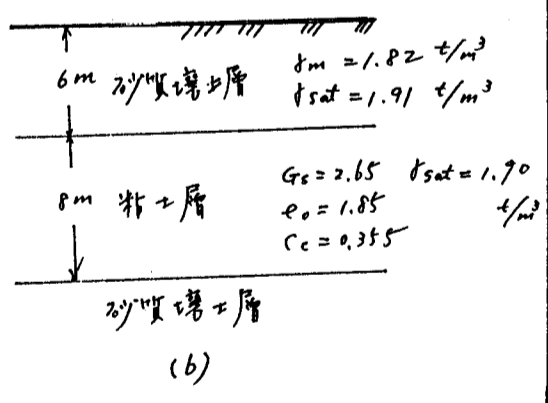 6m 砂質壤土層 γm = 1.82 t/m³
γsat = 1.91 t/m³
8m 粘土層 Gs = 2.65 γsat = 1.90 t/m³
e₀ = 1.85
Cc = 0.355
砂質壤土層
(b)